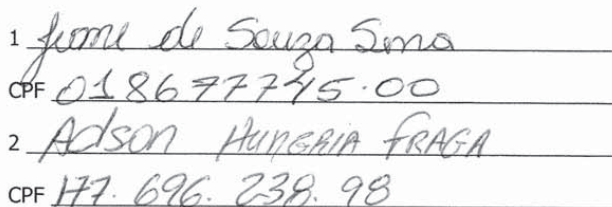 1 de Souza
CPF 018677745.00
2 Adson HUNGRIA FRAGA
CPF 177.696.238.98